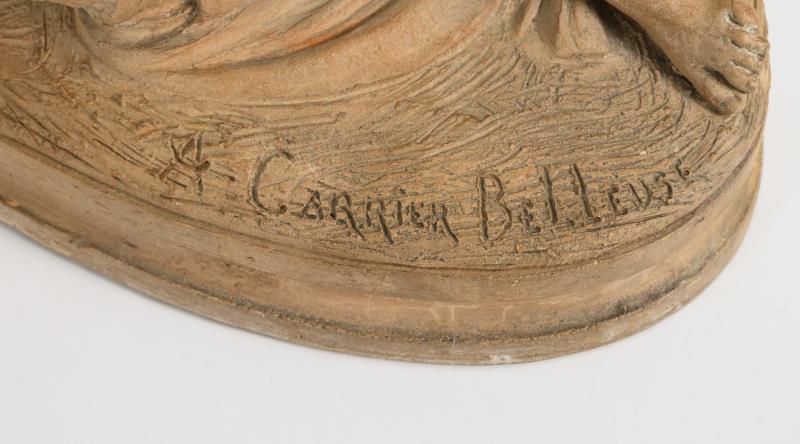 A CARRIER BELLEUSE